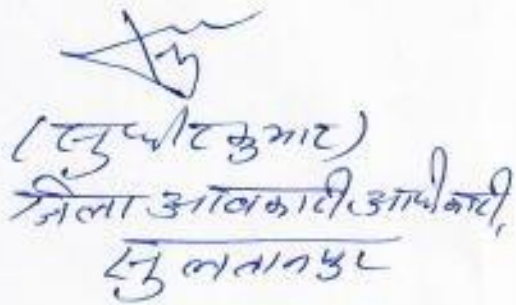 (सुधीर कुमार)
जिला आबकारी अधिकारी,
सुलतानपुर